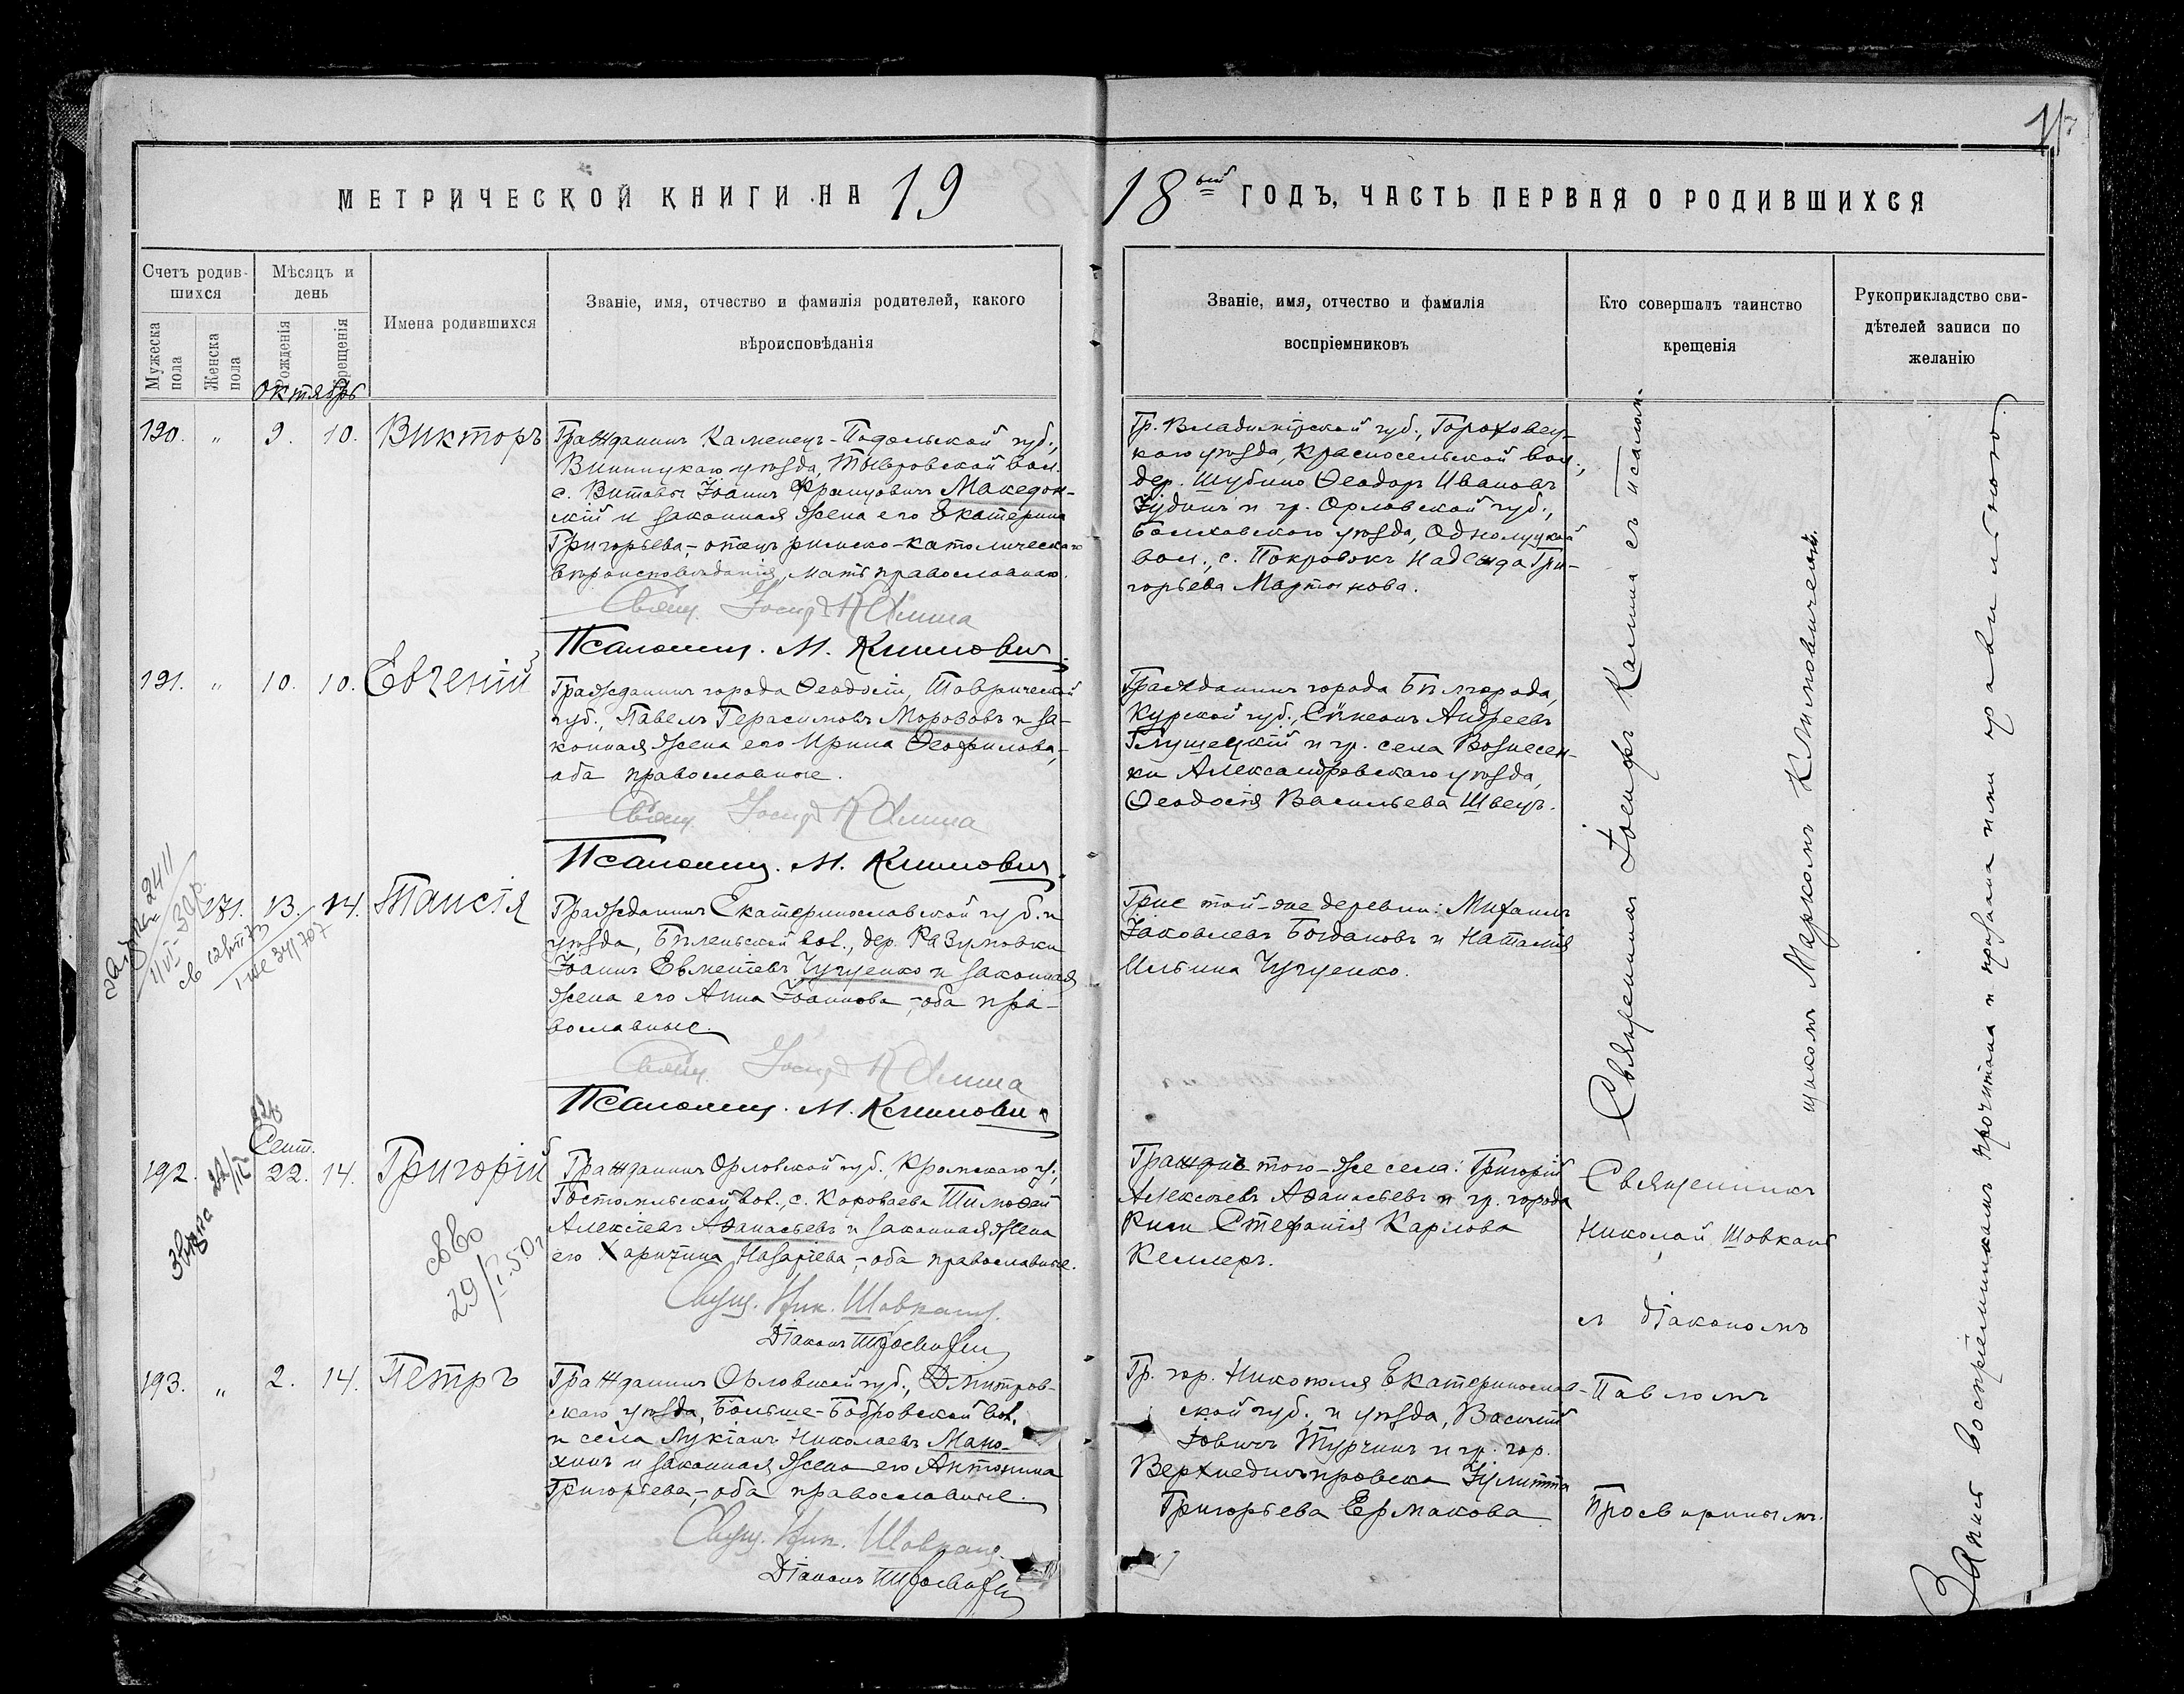 МЕТРИЧЕСКОЙ КНИГИ НА 19
18ый ГОДЪ, ЧАСТЬ ПЕРВАЯ О РОДИВШИХСЯ
Счетъ родив-
шихся
Мужеска
пола
Женска
пола
Мѣсяцъ и
день
Рожденія
Крещенія
Имена родившихся
Званіе, имя, отчество и фамилія родителей, какого
вѣроисповѣданія
Званіе, имя, отчество и фамилія
воспріемниковъ
Кто совершалъ таинство
крещенія
Рукоприкладство сви-
дѣтелей записи по
желанію
Октябрь
190. " 9. 10. Викторъ
Гражданинъ Каменецъ-Подольской губ.,
Винницкаго уѣзда, Тывровской вол.
с. Витава Іоаннъ Францовичъ Македон-
скій и законная жена его Екатерина
Григорьева,- отецъ римско-католическаго
вѣроисповѣданія, мать православная.
Свящ. Іосифъ Калина
Псаломщ. М. Климович.
Гр. Владимірской губ., Гороховец-
каго уѣзда, Красносельской вол.,
дер. Шубино Ѳеодоръ Ивановъ
Зудинъ и гр. Орловской губ.,
Болховского уѣзда, Однолуцкой
вол., с. Покровокъ Надежда Гри-
горьева Мартынова.
191. " 10. 10. Евгеній
Гражданинъ города Ѳеодосіи, Таврической
губ., Павелъ Герасимовъ Морозовъ и за-
конная жена его Ирина Ѳеофилова,-
оба православные.
Свящ. Іосифъ Калина
Псаломщ. М. Климович.
Гражданинъ города Бѣлгорода,
Курской губ., Сѵмеонъ Андреевъ
Глушецкій и гр. села Вознесен-
ки Александровскаго уѣзда,
Ѳеодосія Васильева Швецъ.
171. 13. 14. Таисія
Гражданинъ Екатеринославской губ. и
уѣзда, Бѣленьской вол., дер. Разумовки
Іоаннъ Евменіевъ Чучценко и законная
жена его Анна Іоаннова,-оба пра-
вославные.
Свящ. Іосифъ Калина
Псаломщ. М. Климович
Гр-не той-же деревни: Михаилъ
Іаковлевъ Богдановъ и Наталія
Ильина Чучценко.
Священникъ Іосифъ Калина съ псалом-
щикомъ Маркомъ Климовичемъ.
Сент.
192. 22. 14. Григорій
Гражданинъ Орловской губ., Кромскаго у.,
Гостомльской вол., с. Короваева Тимоѳей
Алексіевъ Аѳанасьевъ и законная жена
его Харитина Назаріева,-оба православные.
Свящ. Ник. Шовкапъ.
Діаконъ П. Просвирин
Гражд-нъ того-же села: Григорій
Алексіевъ Аѳанасьевъ и гр. города
Риги Стефанія Карлова
Келлеръ.
Священникъ
Николай Шовкапъ
съ діакономъ
Павломъ
Просвиринымъ.
193. " 2. 14. Петръ
Гражданинъ Орловской губ., Дмитров-
скаго уѣзда, Больше-Бобровской вол.
и села Лукіанъ Николаевъ Мано-
хинъ и законная жена его Антонина
Григорьева,-оба православные.
Свящ. Ник. Шовкапъ.
Діаконъ П. Просвирин
Гр. гор. Никополя Екатеринослав-
ской губ. и уѣзда, Василій
Іовичъ Турчинъ и гр. гор.
Верхнеднѣпровска Іулитта
Григорьева Ермакова
Запись воспріемникамъ прочитана и признана ими правильною.